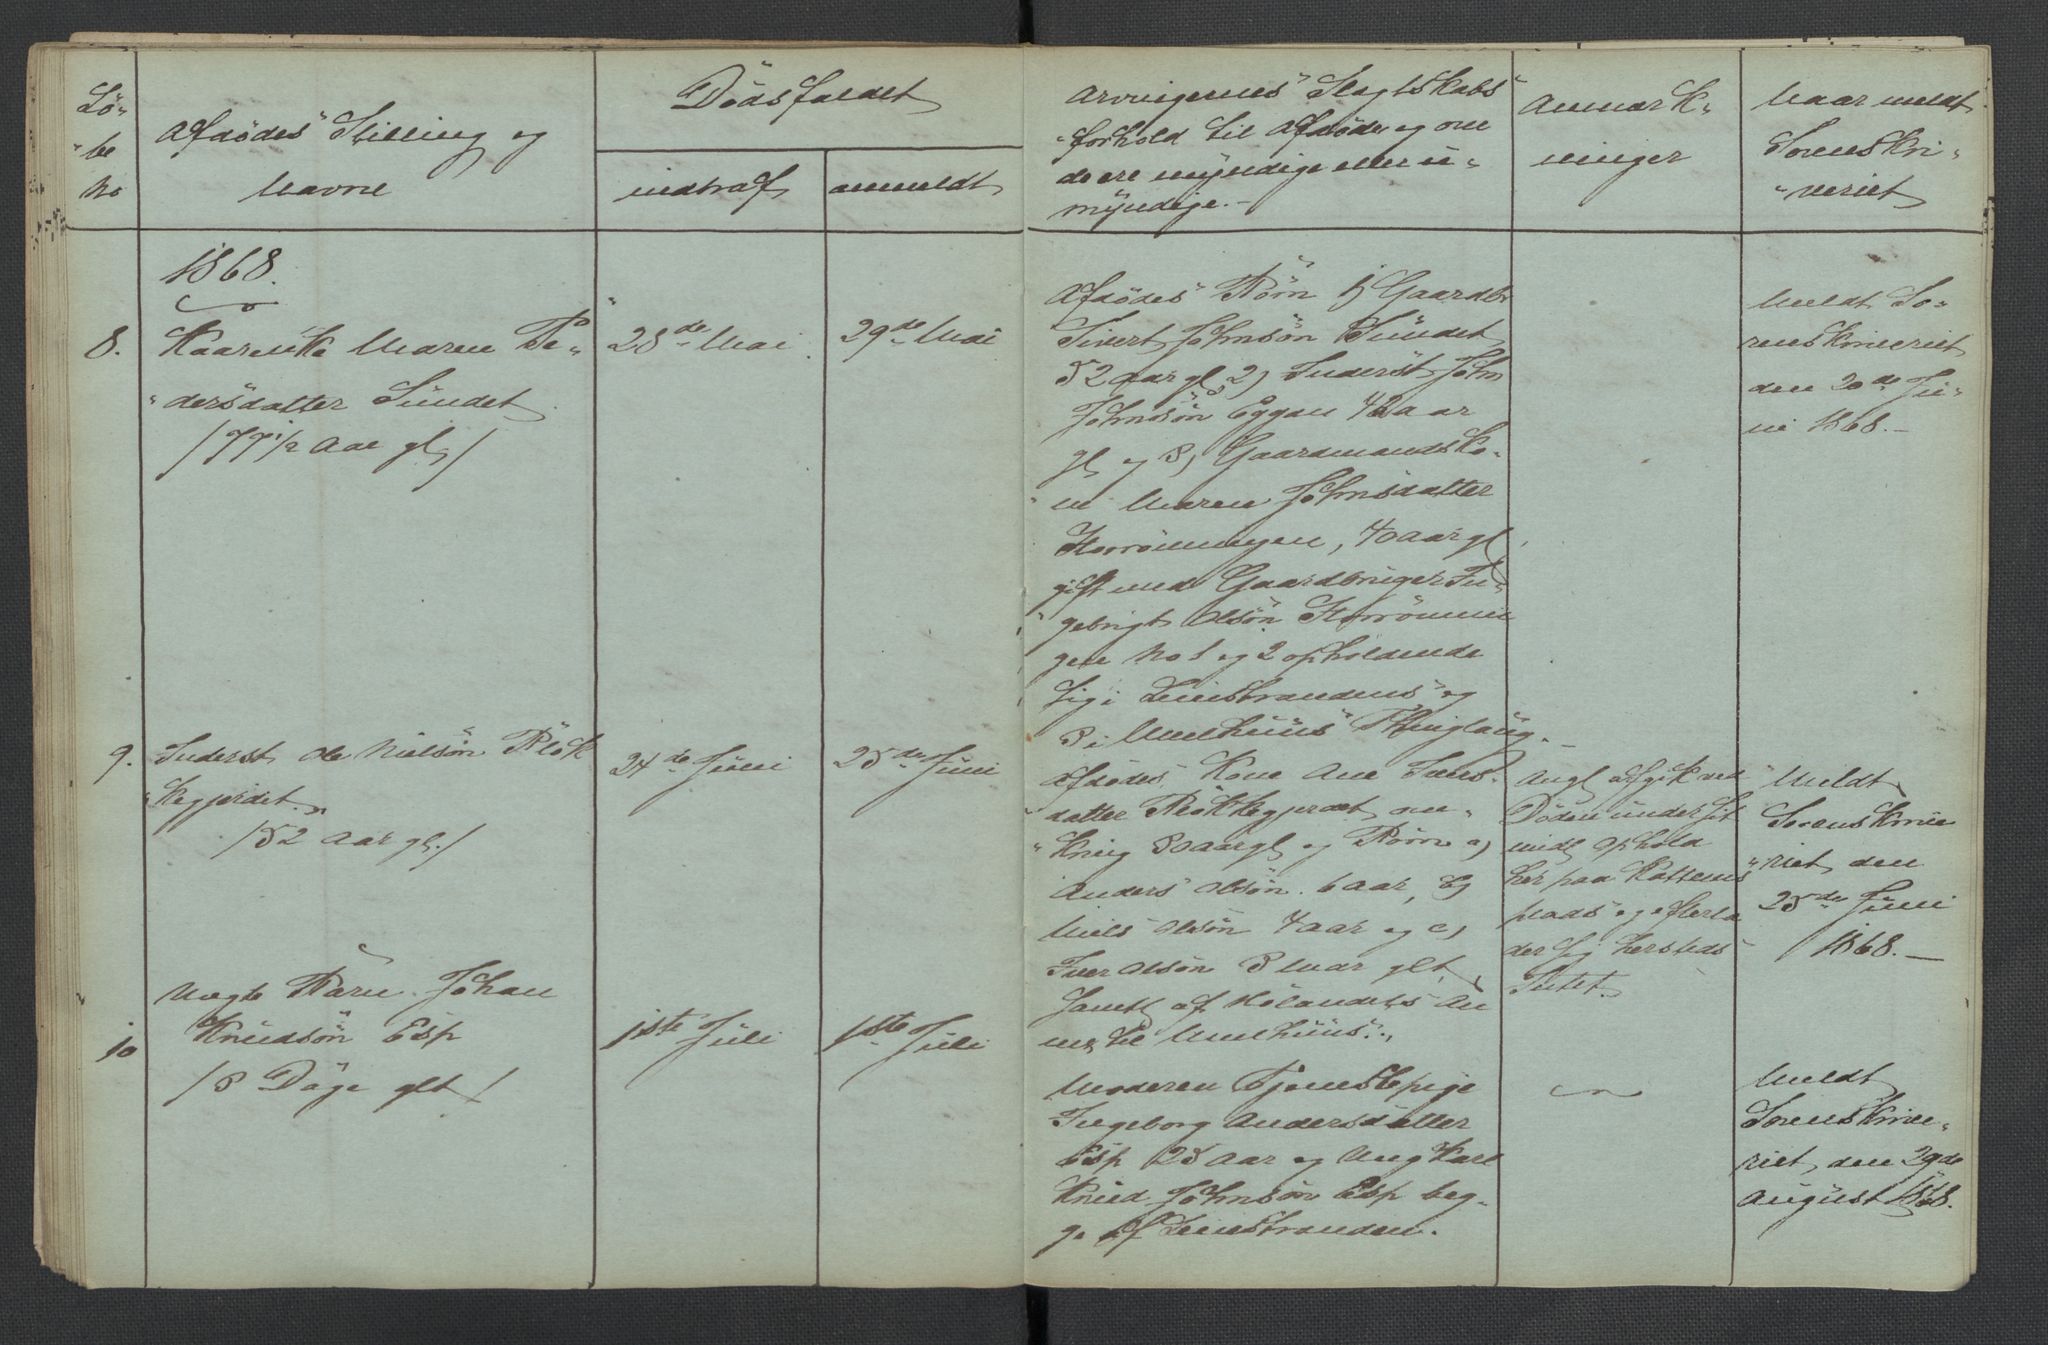 Lö-
"be
No
Afdödes Stilling og
Navne
Dödsfaldet
indtraf
anmeldt
Arvingernes Slagtskabs
"forhold til Afdöde og om
de ere myndige eller u-
myndige.-
Anmærk-
ninger
Naar meldt
Sorenskri-
"veriet
1868.
8.
Kaarenke Maren Pe-
"dersdatter Sundet
/77 1/2 Aar gl/
28de Mai
29de Mai
Afdödes Börn 1) Gaardbr
Sivert Johnsön Sundet
52 aar gl, 2) Inderst John
Johnsön Eggan 42 aar
gl og 3) Gaardmandsko-
"ne Maren Johnsdatter
Storrönningen, 40 aar gl
gift med Gaardbruger In-
"gebrigt Olsön Storrönnin
gen No 1 og 2 opholdende
sig i Leinstrandens og
3 i Melhuus Thinglaug.-
Meldt So-
renskriveriet
den 20de Ju-
ni 1868.-
9.
Inderst Ole Nielsön Blök
"kegjerdet
/52 Aar gl./
24de Juni
25de Juni
Afdödes Kone Ane Ivers-
datter Blökkegjerdet om-
"kring 30 aar gl og Börn a)
Anders Olsön 6 aar, b)
Niels Olsön 4 aar og c)
Iver Olsön 3 Maar glt,
samtl af Hölandets An
nex til Melhuus.,
Angl afgik ved
Döden under sit
midl ophold
her paa Kattems
plads og efterla
der sig hersteds
Intet.
Meldt
Sorenskrive
riet den
25de Juni
1868.-
10
Uægte Barn Johan
Knudsön Esp
/3 Dage glt/
1ste Juli
1ste Juli
Moderen Tjenestepige
Ingeborg Andersdatter
Esp 25 Aar og Ung Karl
Knud Johnsön Esp beg-
ge af Leinstranden.
Meldt
Sorenskrive-
riet den 29de
August 1868.